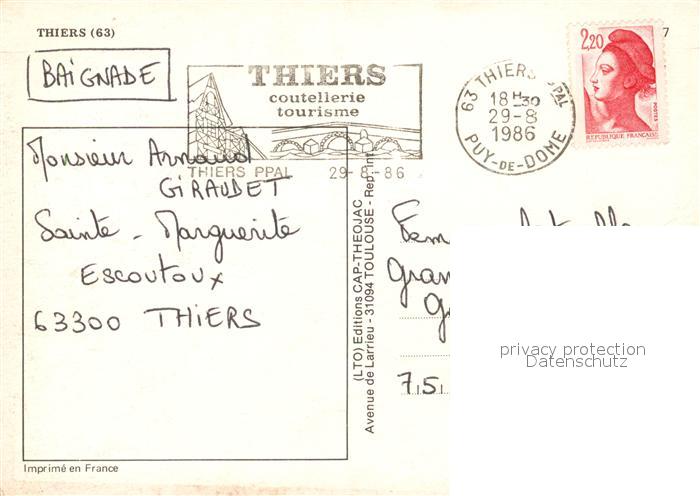 THIERS (63)
7
BAIGNADE
THIERS
coutellerie
tourisme
THIERS PPAL 29-8-86
63 THIERS PPAL
18H30
29-8
1986
PUY-DE-DOME
2,20
POSTES
REPUBLIQUE FRANÇAISE
Monsieur Arnaud
GIRAUDET
Sainte - Marguerite
Escoutoux
63300 THIERS
(LTO) Editions CAP-THEOJAC
Avenue de Larrieu - 31094 TOULOUSE - Rep. int
Gran
75
privacy protection
Datenschutz
Imprimé en France